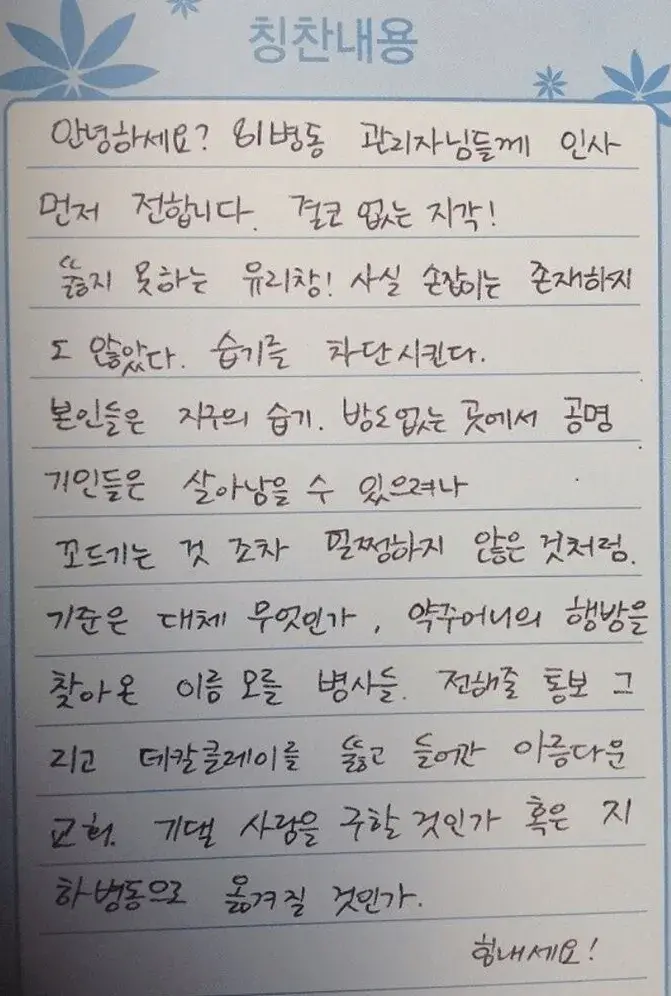 칭찬내용
안녕하세요? 81병동 관리자님들께 인사
먼저 전합니다. 결코 없는 지각!
"뚫지 못하는 유리창! 사실 손잡이는 존재하지
도 않았다. 습기를 차단시킨다.
본인들은 지구의 습기. 방도없는 곳에서 공명
기인들은 살아남을 수 있으려나
꼬드기는 것 조차 멀쩡하지 않은 것처럼.
기준은 대체 무엇인가, 약주머니의 행방을
찾아온 이름 모를 병사들. 전해줄 통보 그
리고 데칼클레이를 뚫고 들어간 아름다운
교회. 기댈 사람을 구할 것인가 혹은 지
하병동으로 옮겨질 것인가.
힘내세요!